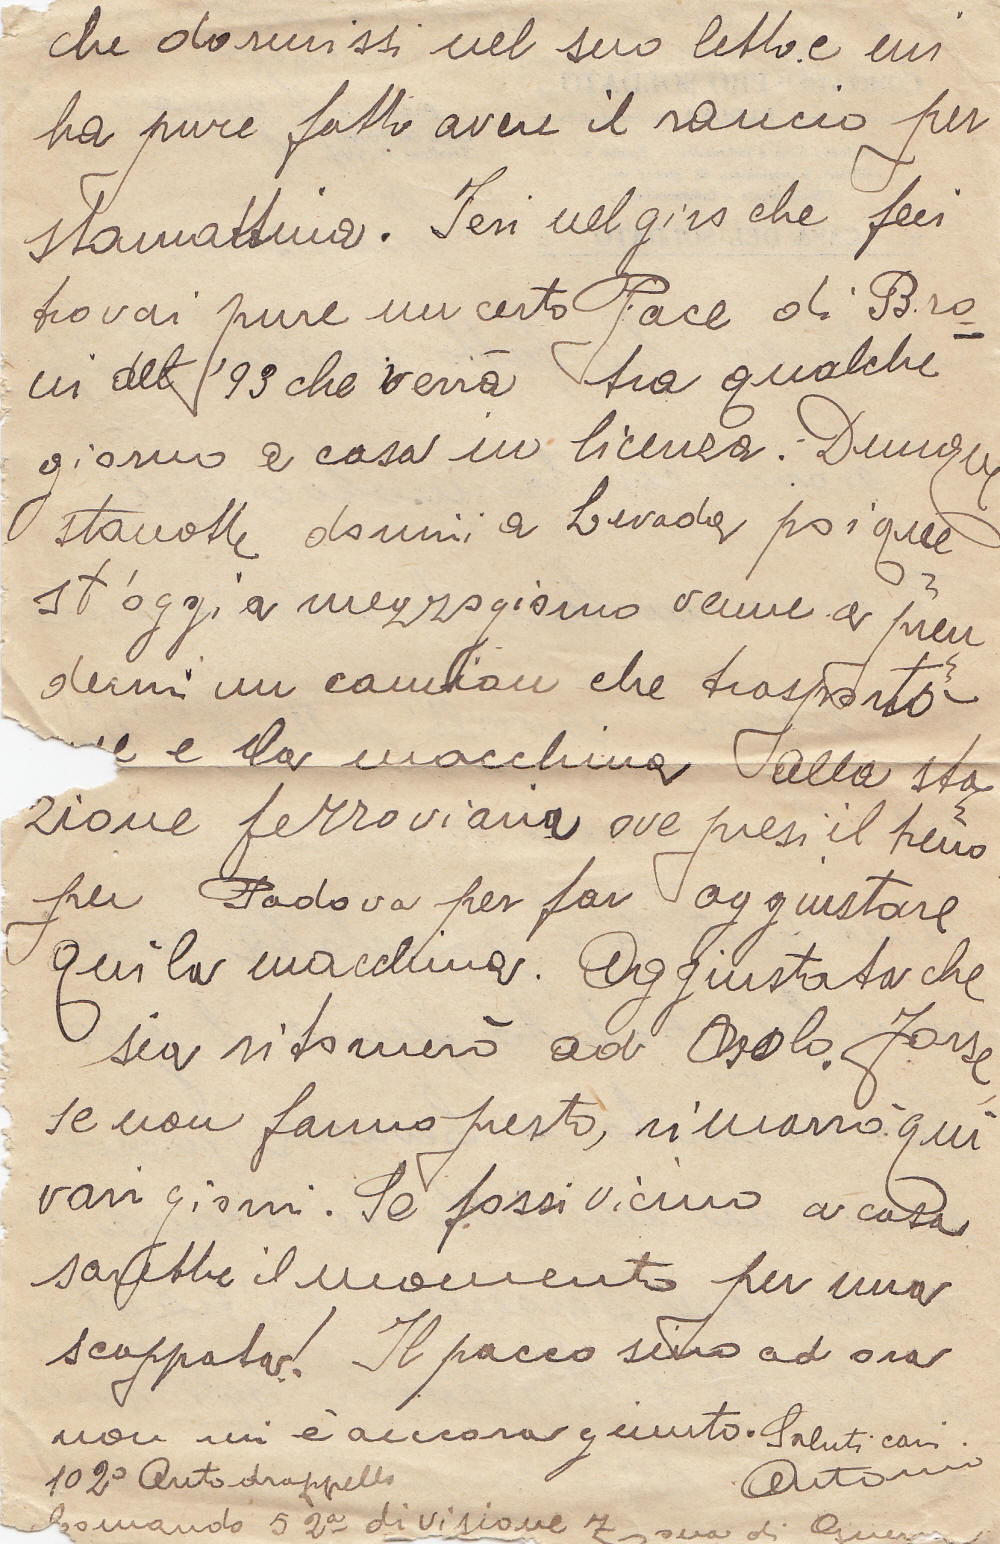 che dormissi nel suo letto e mi
ha pure fatto avere il rancio per
stamattina. Ieri nel giro che feci
trovai pure un certo Pace di Bro-
ni del '93 che verrà tra qualche
giorno a casa in licenza. Dunque
stanotte dormii a Levada poi que
st'oggi a mezzogiorno venne a pren
dermi un camion che trasportò
me e la macchina alla sta
zione ferroviaria ove presi il treno
per Padova per far aggiustare
qui la macchina. Aggiustata che
sia ritornerò ad Asolo. Forse,
se non fanno presto, rimarrò qui
vari giorni. Se fossi vicino a casa
sarebbe il momento per una
scappata! Il pacco sino ad ora
non mi è ancora giunto. Saluti cari.
Antonio
102° Autodrappello
Comando 52a divisione Zona di Guerra